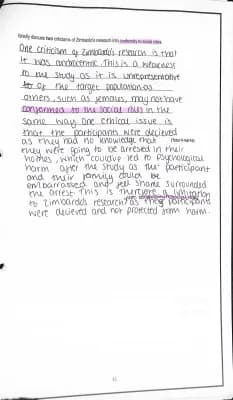 Briefly discuss two criticisms of Zimbardo's research into conformity to social roles.
One criticism of Zimbardo's research is that
it was androcentric. This is a weakness
to the study as it is unrepresentative
of the target population as
others, such as females, may not have
conformed to the social roles in the
same way. One ethical issue is
that the participants were decieved
as they had no knowledge that
they were going to be arrested in their
homes, which could've led to psychological
harm after the study as the participant
and their family could be
embarrassed and feel shame surrounded
the arrest. This is therefore a limitation
to Zimbardo's research as the participants
were decieved and not protected from harm.